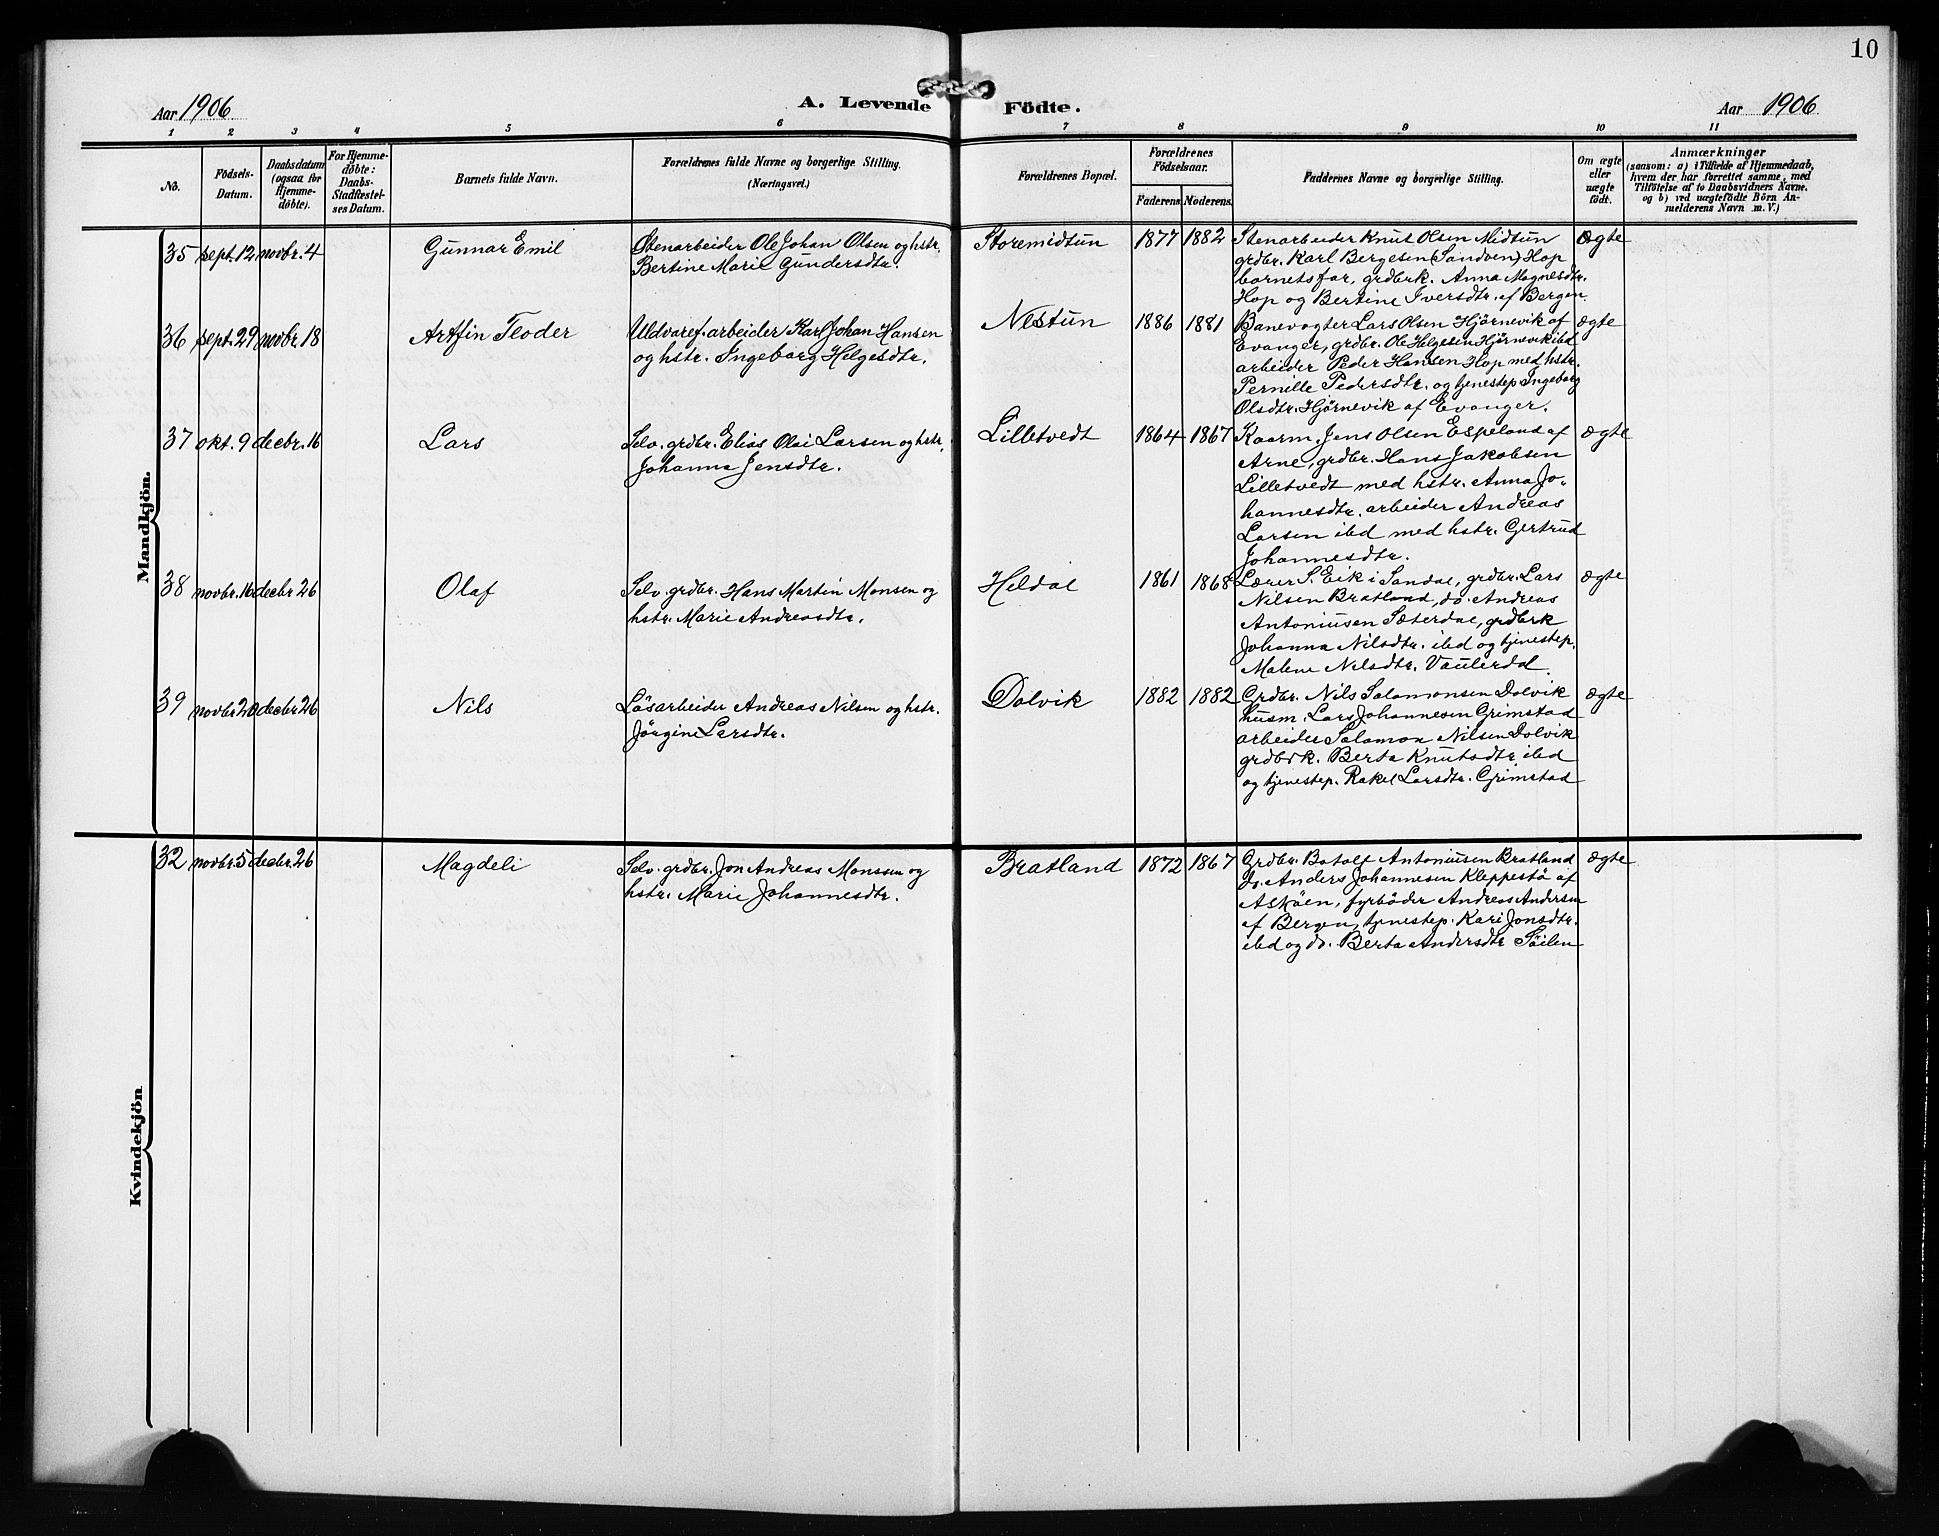 10
Aar 1906
A. Levende Födte.
Aar 1906
1 2 3 4 5 6 7 8 9 10 11
No.
Födsels-
Datum.
Daabsdatum
(ogsaa for
Hjemme-
döbte).
For Hjemme-
döbte:
Daabs-
Stadfæstel-
ses Datum.
Barnets fulde Navn.
Forældrenes fulde Navne og borgerlige Stilling.
(Næringsvei.)
Forældrenes Bopæl.
Forældrenes
Födselsaar.
Faderens
Moderens.
Faddernes Navne og borgerlige Stilling.
Om ægte
eller
uægte
födt.
Anmærkninger
(saasom: a) i Tilfælde af Hjemmedaab,
hvem der har forrettet samme, med
Tilföielse af to Daabsvidners Navne.
og b) ved uægtefödte Börn An-
melderens Navn m. V.)
Mandkjön.
35 sept. 12 novbr. 4
Gunnar Emil
Stenarbeider Ole Johan Olsen og hstr.
Bertine Marie Gundersdtr.
Storemidtun
1877 1882
Stenarbeider Knut Olsen Midtun
grdbr. Karl Bergesen (Sandven) Hop
barnets far, grdbrk. Anna Magnesdtr.
Hop og Bertine Iversdtr. af Bergen
ægte
36 sept. 29 novbr. 18
Artfin Teoder
Uldvaref. arbeider Karl Johan Hansen
og hstr. Ingeborg Helgesdtr.
Nestun
1886 1881
Banevogter Lars Olsen Hjørnevik af
Evanger, grdbr. Ole Helgesen Hjørnevik ibd
arbeider Peder Hansen Hop med hstr.
Pernille Pedersdtr. og tjenestep Ingeborg
Olsdtr. Hjørnevik af Evanger.
ægte
37 okt. 9 decbr. 16
Lars
Selv. grdbr. Elias Olai Larsen og hstr.
Johanna Jensdtr.
Lilletvedt
1864 1867
Kaarm. Jens Olsen Espeland af
Arne, grdbr. Hans Jakobsen
Lilletvedt med hstr. Anna Jo-
hannesdtr. arbeider Andreas
Larsen ibd med hstr. Gertrud
Johannesdtr.
ægte
38 novbr. 16 decbr 26
Olaf
Selv. grdbr. Hans Martin Monsen og
hstr. Marie Andreasdtr.
Heldal
1861 1868
Lærer S. Eik i Sandal, grdbr. Lars
Nilsen Bratland, do. Andreas
Antoniusen Sæterdal, grdbrk
Johanna Nilsdtr. ibd og tjenestep.
Malene Nilsdtr. Vaulerdal
ægte
39 novbr 20 decbr 26
Nils
Lösarbeider Andreas Nilsen og hstr.
Jörgine Larsdtr.
Dolvik
1882 1882
Grdbr. Nils Salamonsen Dolvik
husm. Lars Johannesen Grimstad
arbeider Salamon Nilsen Dolvik
grdbrk. Berta Knutsdtr. ibd
og tjenestep. Rakel Larsdtr. Grimstad
ægte
Kvindekjön
32 novbr. 5 decbr. 26
Magdeli
Selv. grdbr. Jon Andreas Monssen og
hstr. Marie Johannesdtr.
Bratland
1872 1867
Grdbr. Botolf Antoniusen Bratland
do. Anders Johannesen Kleppestö af
Asköen, fyrböder Andreas Andersen
af Bergen, tjenestep. Kari Jonsdtr.
ibd og do. Berta Andersdtr Söilen
ægte